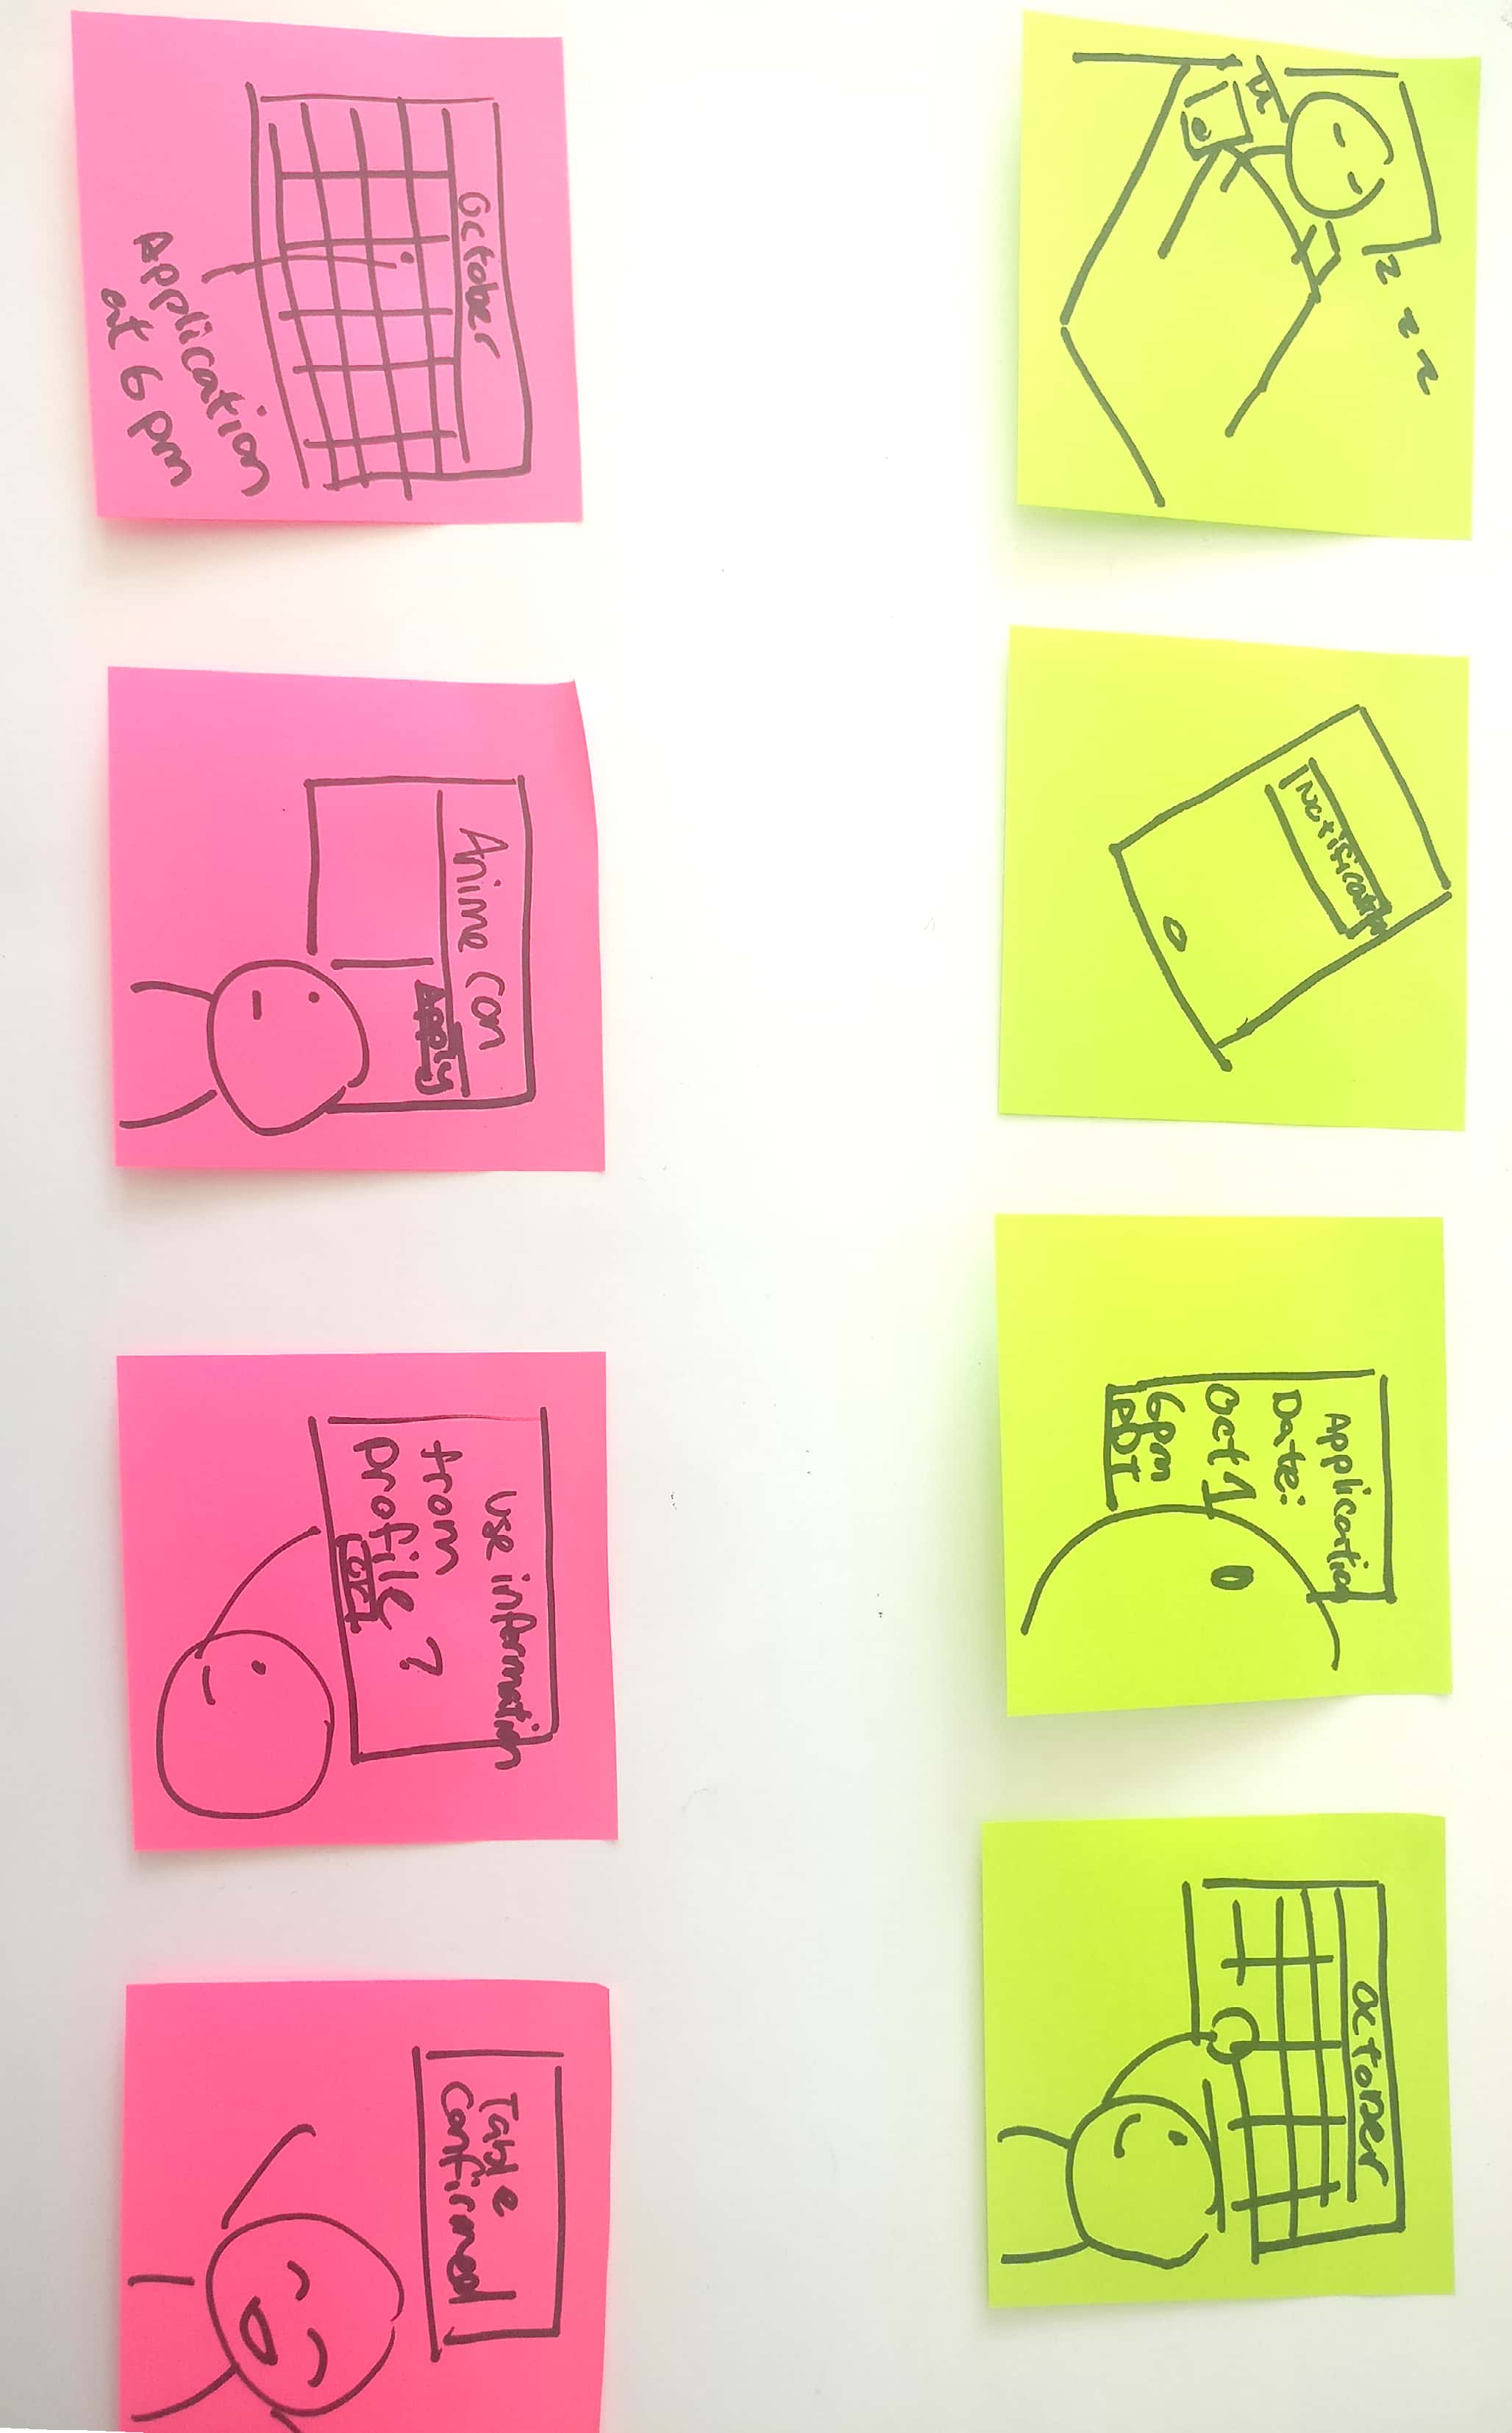 z z z
Notification
Application
Date:
Oct 1
6pm
PDT
October
October
Application
at 6pm
Anime Con
Apply
Use information
from
profile ?
OK
Table
Confirmed